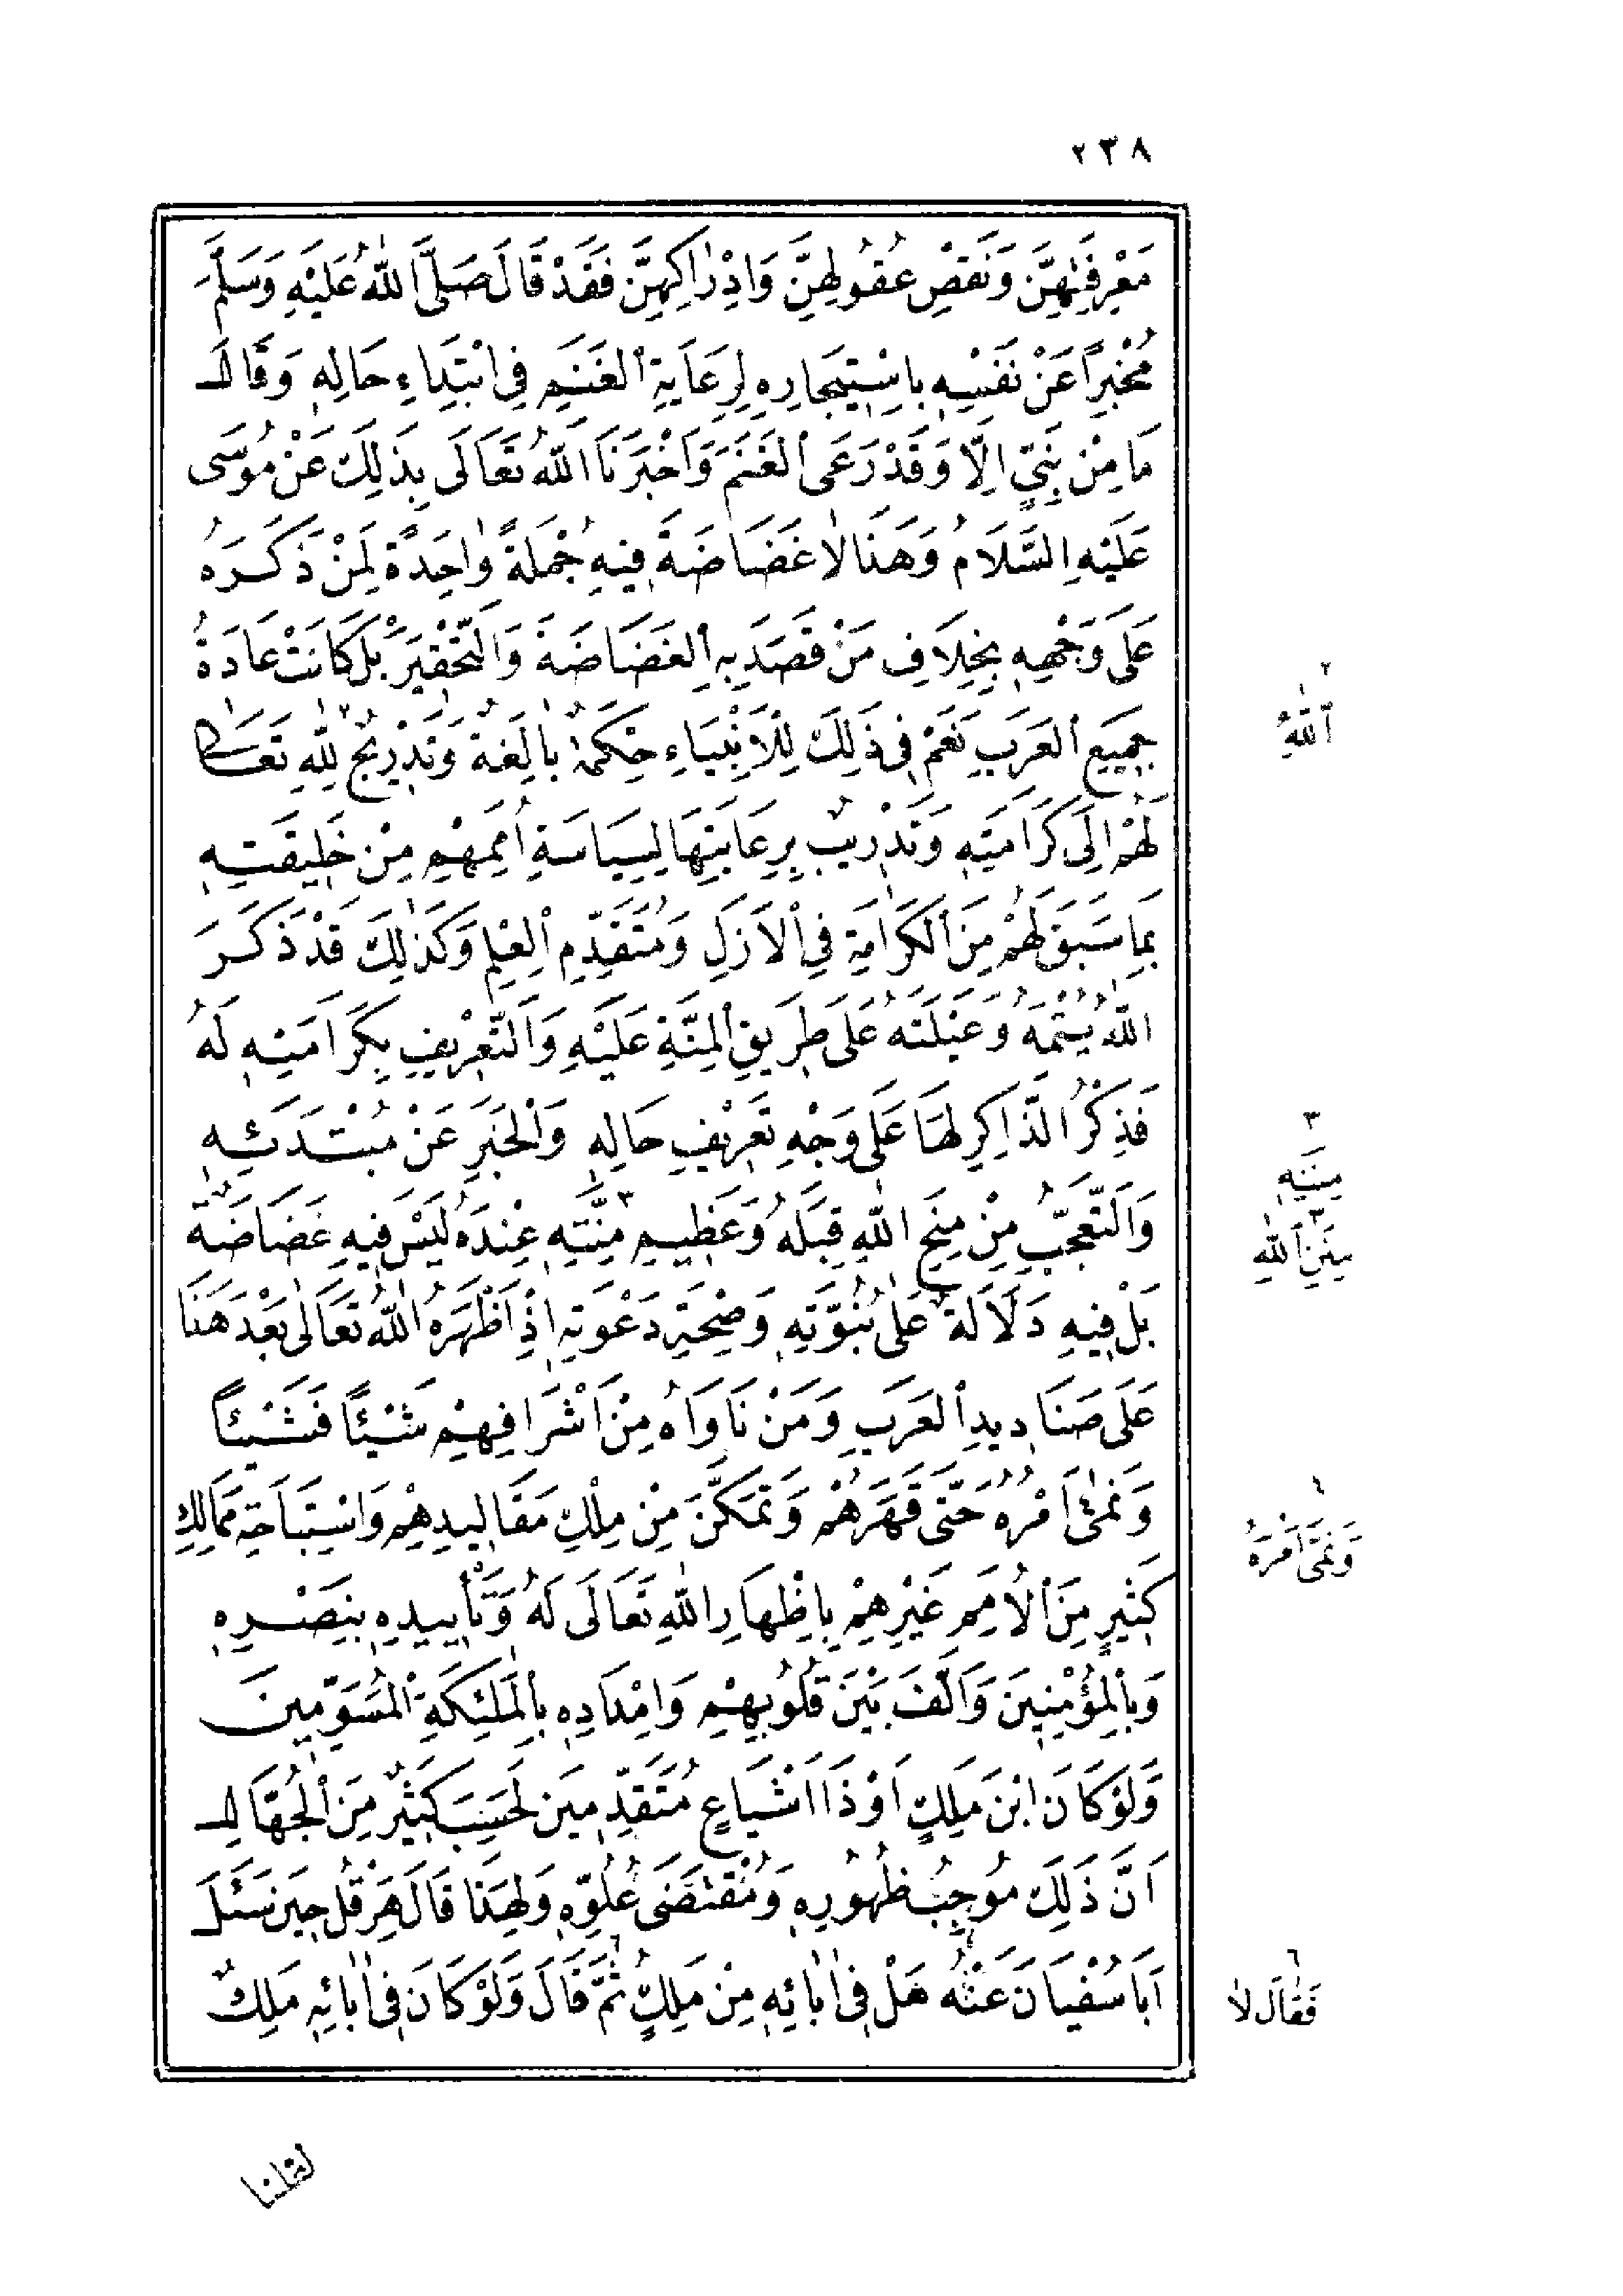 ٢٣٨
مَعْرِفَتِهِنَّ وَنَقْصِ عُقُولِهِنَّ وَاِدْرَاكِهِنَّ فَقَدْ قَالَ صَلَّى اللّٰهُ عَلَيْهِ وَسَلَّمَ
مُخْبِرًا عَنْ نَفْسِهِ بِاسْتِيجَارِهِ لِرِعَايَةِ الْغَنَمِ فِى ابْتِدَاءِ حَالِهِ وَقَالَ
مَا مِنْ نَبِىٍّ اِلَّا وَقَدْ رَعَى الْغَنَمَ وَاَخْبَرَنَا اللّٰهُ تَعَالَى بِذَلِكَ عَنْ مُوسَى
عَلَيْهِ السَّلَامُ وَهَذَا لَا غَضَاضَةَ فِيهِ جُمْلَةً وَاحِدَةً لِمَنْ ذَكَرَهُ
عَلَى وَجْهِهِ بِخِلَافِ مَنْ قَصَدَ بِهِ الْغَضَاضَةَ وَالتَّحْقِيرَ بَلْ كَانَتْ عَادَةُ
جَمِيعِ الْعَرَبِ نَعَمْ فِى ذَلِكَ لِلْاَنْبِيَاءِ حِكْمَةٌ بَالِغَةٌ وَتَدْرِيجٌ لِلّٰهِ تَعَالَى
لَهُمْ اِلَى كَرَامَتِهِ وَتَدْرِيبٌ بِرِعَايَتِهَا لِسِيَاسَةِ اُمَمِهِمْ مِنْ خَلِيقَتِهِ
بِمَا سَبَقَ لَهُمْ مِنَ الْكَرَامَةِ فِى الْاَزَلِ وَمُتَقَدِّمِ الْعِلْمِ وَكَذَلِكَ قَدْ ذَكَرَ
اللّٰهُ يُتْمَهُ وَعَيْلَتَهُ عَلَى طَرِيقِ الْمِنَّةِ عَلَيْهِ وَالتَّعْرِيفِ بِكَرَامَتِهِ لَهُ
فَذِكْرُ الذَّاكِرِ لَهَا عَلَى وَجْهِ تَعْرِيفِ حَالِهِ وَالْخَبَرِ عَنْ مُبْتَدَئِهِ
وَالتَّعَجُّبِ مِنْ مِنَحِ اللّٰهِ قِبَلَهُ وَعَظِيمِ ٣ مِنَّتِهِ عِنْدَهُ لَيْسَ فِيهِ غَضَاضَةٌ
بَلْ فِيهِ دَلَالَةٌ عَلَى نُبُوَّتِهِ وَصِحَّةِ دَعْوَتِهِ اِذْ اَظْهَرَهُ اللّٰهُ تَعَالَى بَعْدَ هَذَا
عَلَى صَنَادِيدِ الْعَرَبِ وَمَنْ نَاوَاهُ مِنْ اَشْرَافِهِمْ شَيْئًا فَشَيْئًا
وَنَمَىٰ اَمْرُهُ حَتَّى قَهَرَهُمْ وَتَمَكَّنَ مِنْ مِلْكِ مَقَالِيدِهِمْ وَاسْتِبَاحَةِ مَمَالِكِ
كَثِيرٍ مِنَ الْاُمَمِ غَيْرِهِمْ بِاِظْهَارِ اللّٰهِ تَعَالَى لَهُ وَتَأْيِيدِهِ بِنَصْرِهِ
وَبِالْمُؤْمِنِينَ وَاَلَّفَ بَيْنَ قُلُوبِهِمْ وَاِمْدَادِهِ بِالْمَلٰئِكَةِ الْمُسَوِّمِينَ
وَلَوْ كَانَ ابْنَ مَلِكٍ اَوْ ذَا اَشْيَاعٍ مُتَقَدِّمِينَ لَحَسِبَ كَثِيرٌ مِنَ الْجُهَّالِ
اَنَّ ذَلِكَ مُوجِبُ ظُهُورِهِ وَمُقْتَضَى عُلُوِّهِ وَلِهَذَا قَالَ هِرَقْلُ حِينَ سَئَلَ
اَبَا سُفْيَانَ عَنْهُ هَلْ فِى اٰبَائِهِ مِنْ مَلِكٍ ٦ ثُمَّ قَالَ وَلَوْ كَانَ فِى اٰبَائِهِ مَلِكٌ
٢
اَللّٰهِ
٣
مِنَنِهِ
٣
مِنَنِ اللّٰهِ
٤
وَنَمَّىٰ اَمْرَهُ
٦
فَقَالَ لَا
لقلنا